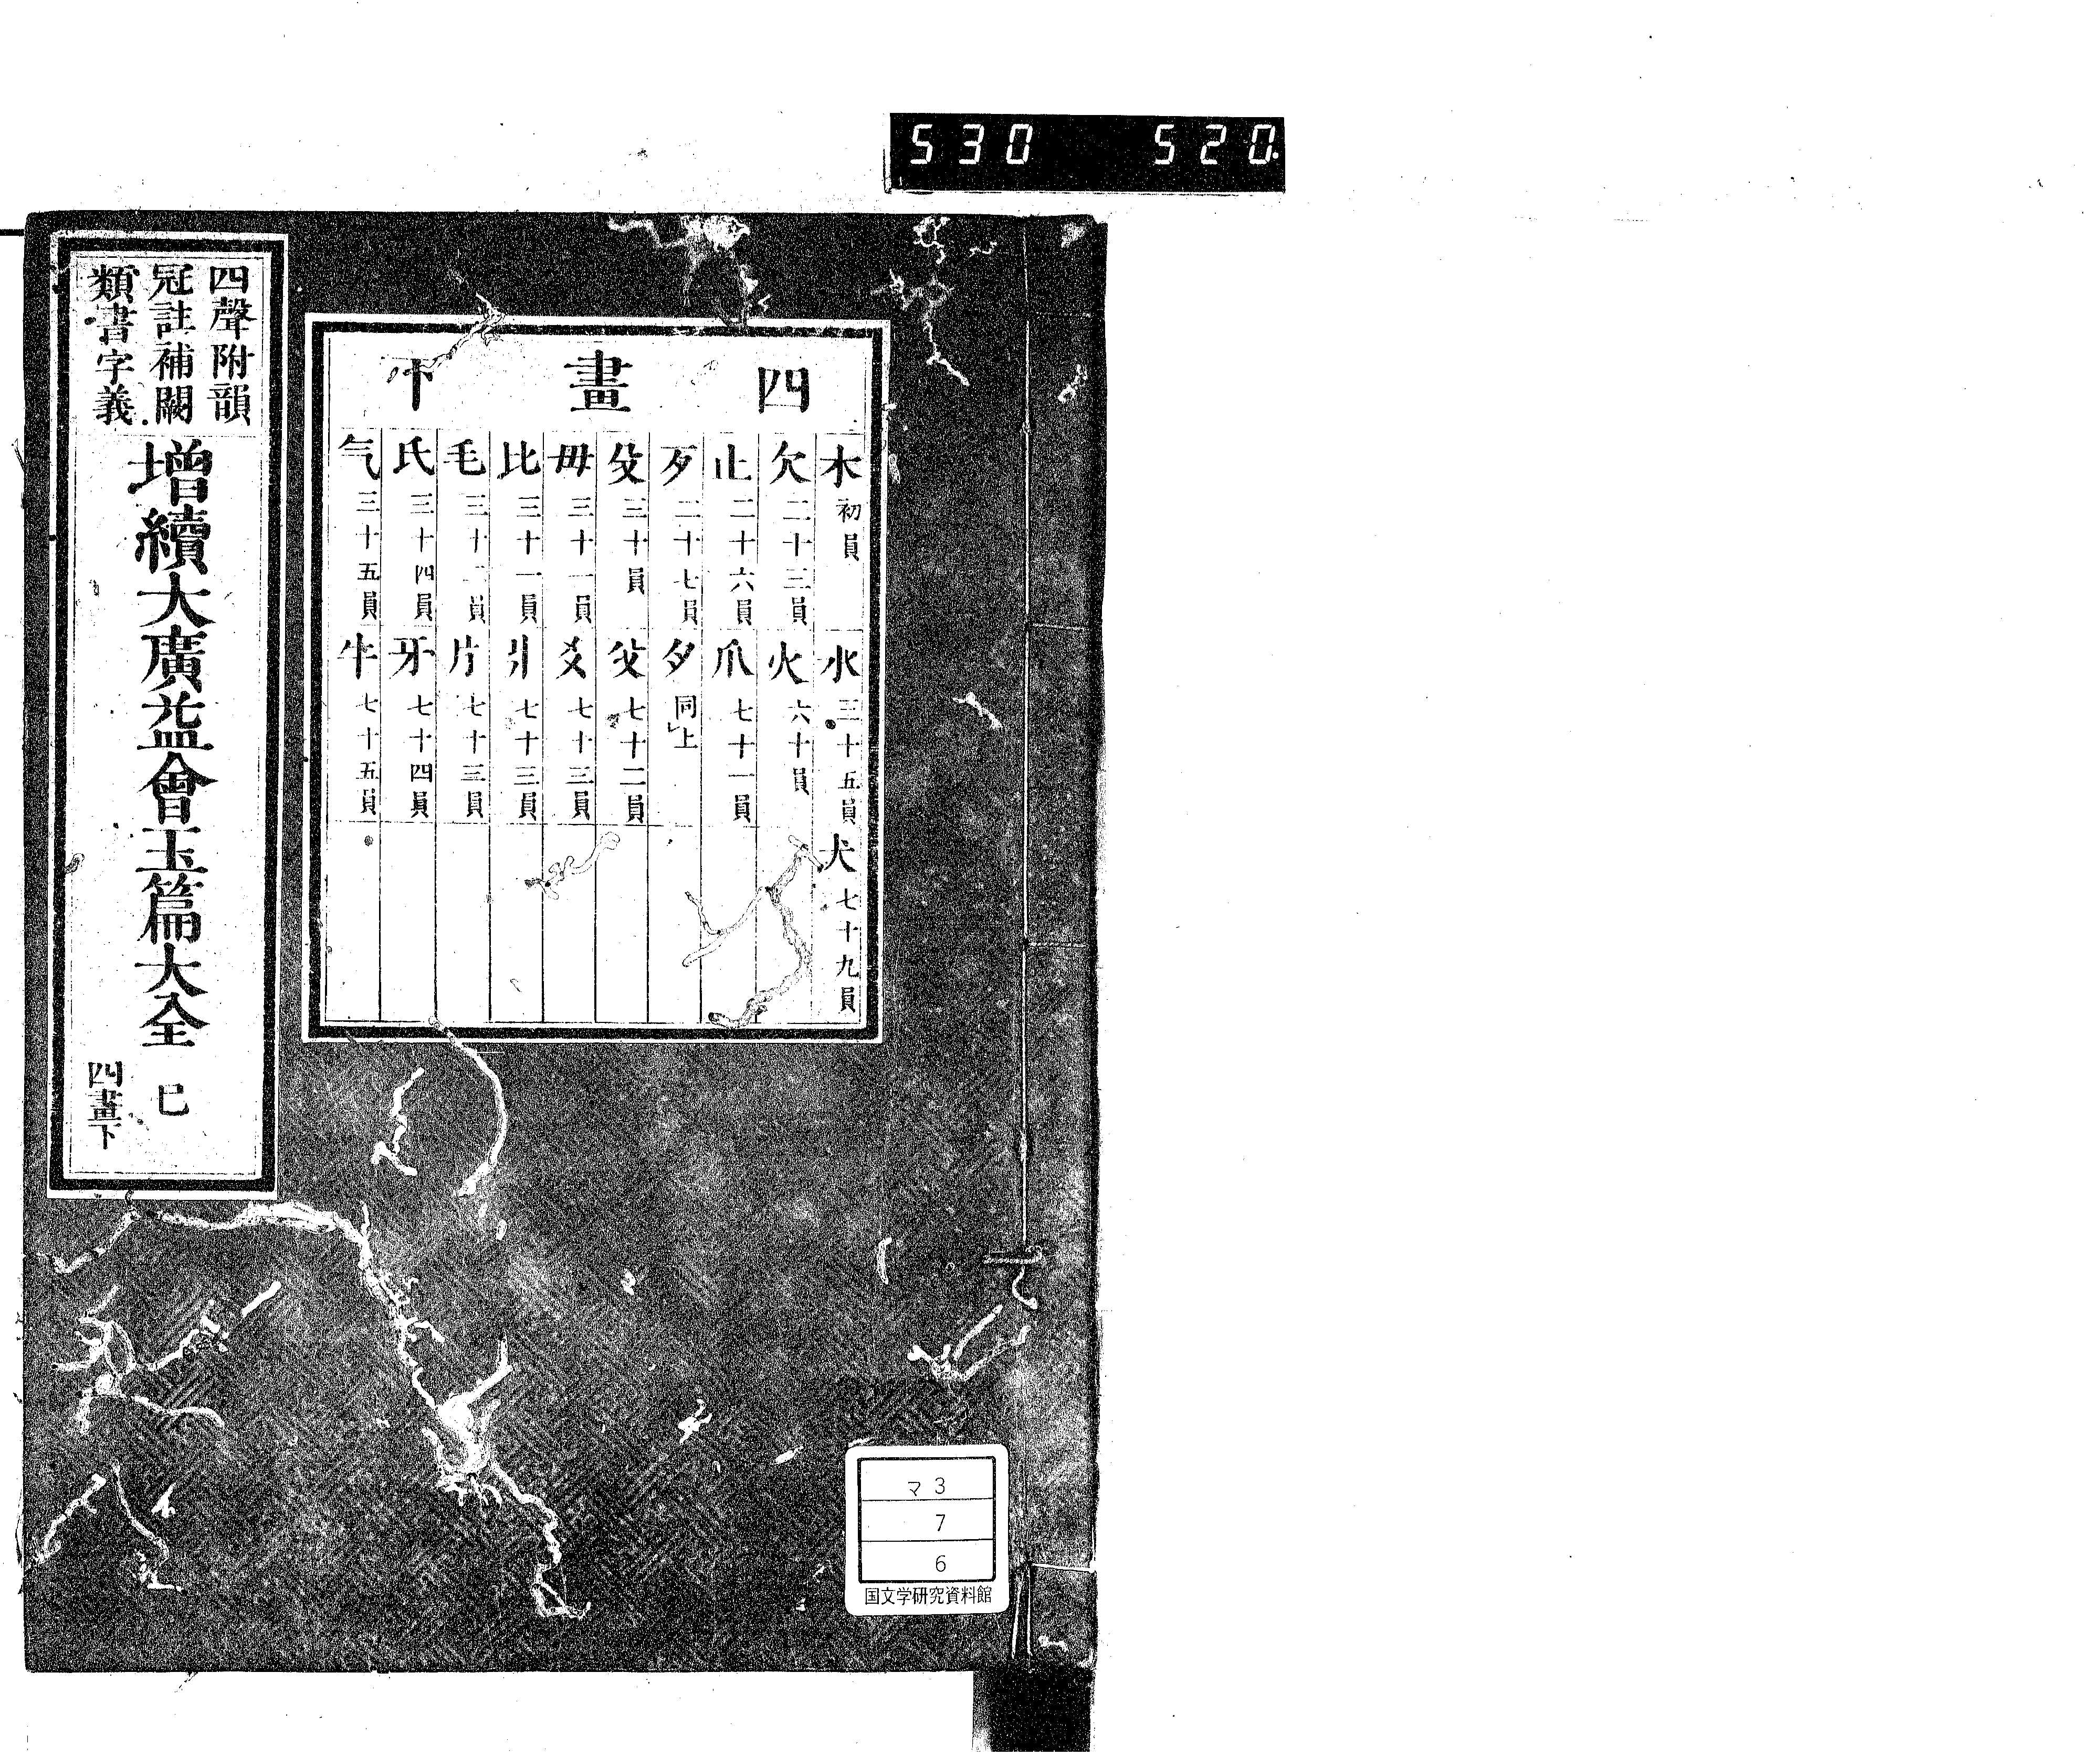 530 520.
四畫下
木 初員 水 三十五員 犬 七十九員
欠 二十三員 火 六十員
止 二十六員 爪 七十一員
歹 二十七員 夕 同上
殳 三十員 父 七十二員
毋 三十一員 爻 七十三員
比 三十一員 爿 七十三員
毛 三十二員 片 七十三員
氏 三十四員 牙 七十四員
气 三十五員 牛 七十五員
四聲附韻
冠註補闕
類書字義
增續大廣益會玉篇大全
巳
四畫下
マ3
7
6
国文学研究資料館